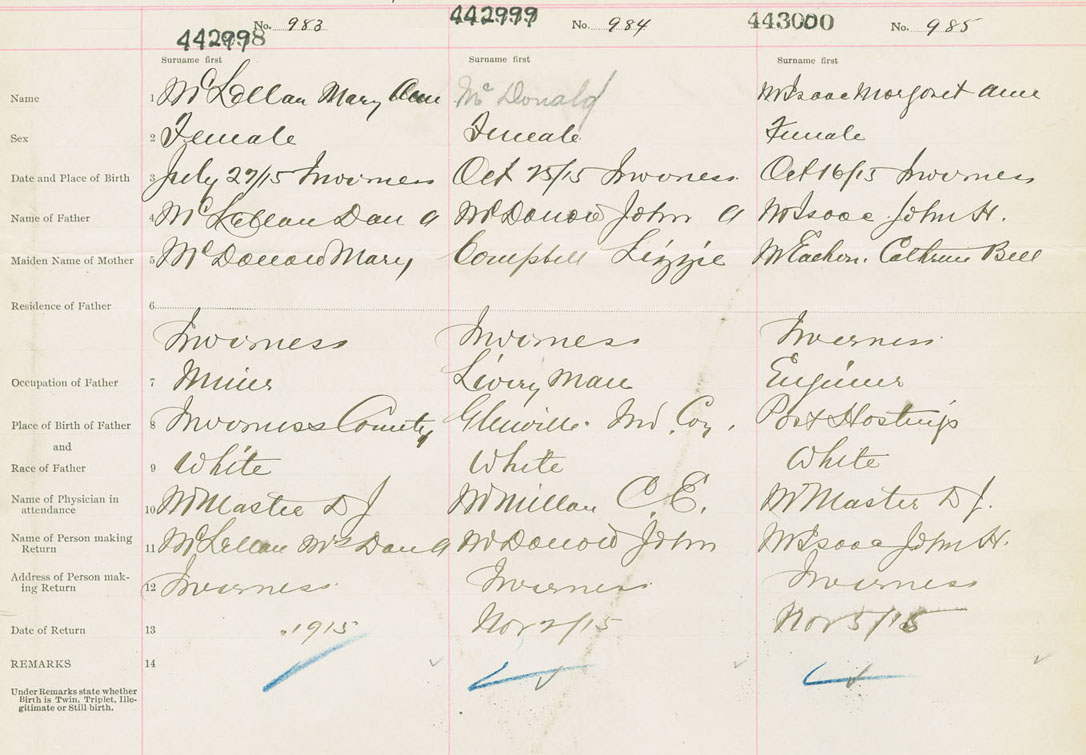 442998 No. 983 442999 No. 984 443000 No. 985
Surname first Surname first Surname first
Name 1 McLellan Mary Ann McDonald McIsaac Margaret Ann
Sex 2 Female Female Female
Date and Place of Birth 3 July 27/15 Inverness Oct 25/15 Inverness Oct 16/15 Inverness
Name of Father 4 McLellan Dan A McDonald John A McIsaac John H.
Maiden Name of Mother 5 McDonald Mary Campbell Lizzie McEachern Cathrine Bell
Residence of Father 6
Inverness Inverness Inverness
Occupation of Father 7 Miner Livery Man Engineer
Place of Birth of Father 8 Inverness County Glenville Inv. Coy. Port Hastings
and
Race of Father 9 White White White
Name of Physician in
attendance 10 McMaster D J McMillan C. E. McMaster D J.
Name of Person making
Return 11 McLellan Mrs Dan A McDonald John McIsaac John H.
Address of Person mak-
ing Return 12 Inverness Inverness Inverness
Date of Return 13 1915 Nov 2/15 Nov 5/15
REMARKS 14
Under Remarks state whether
Birth is Twin, Triplet, Ille-
gitimate or Still birth.